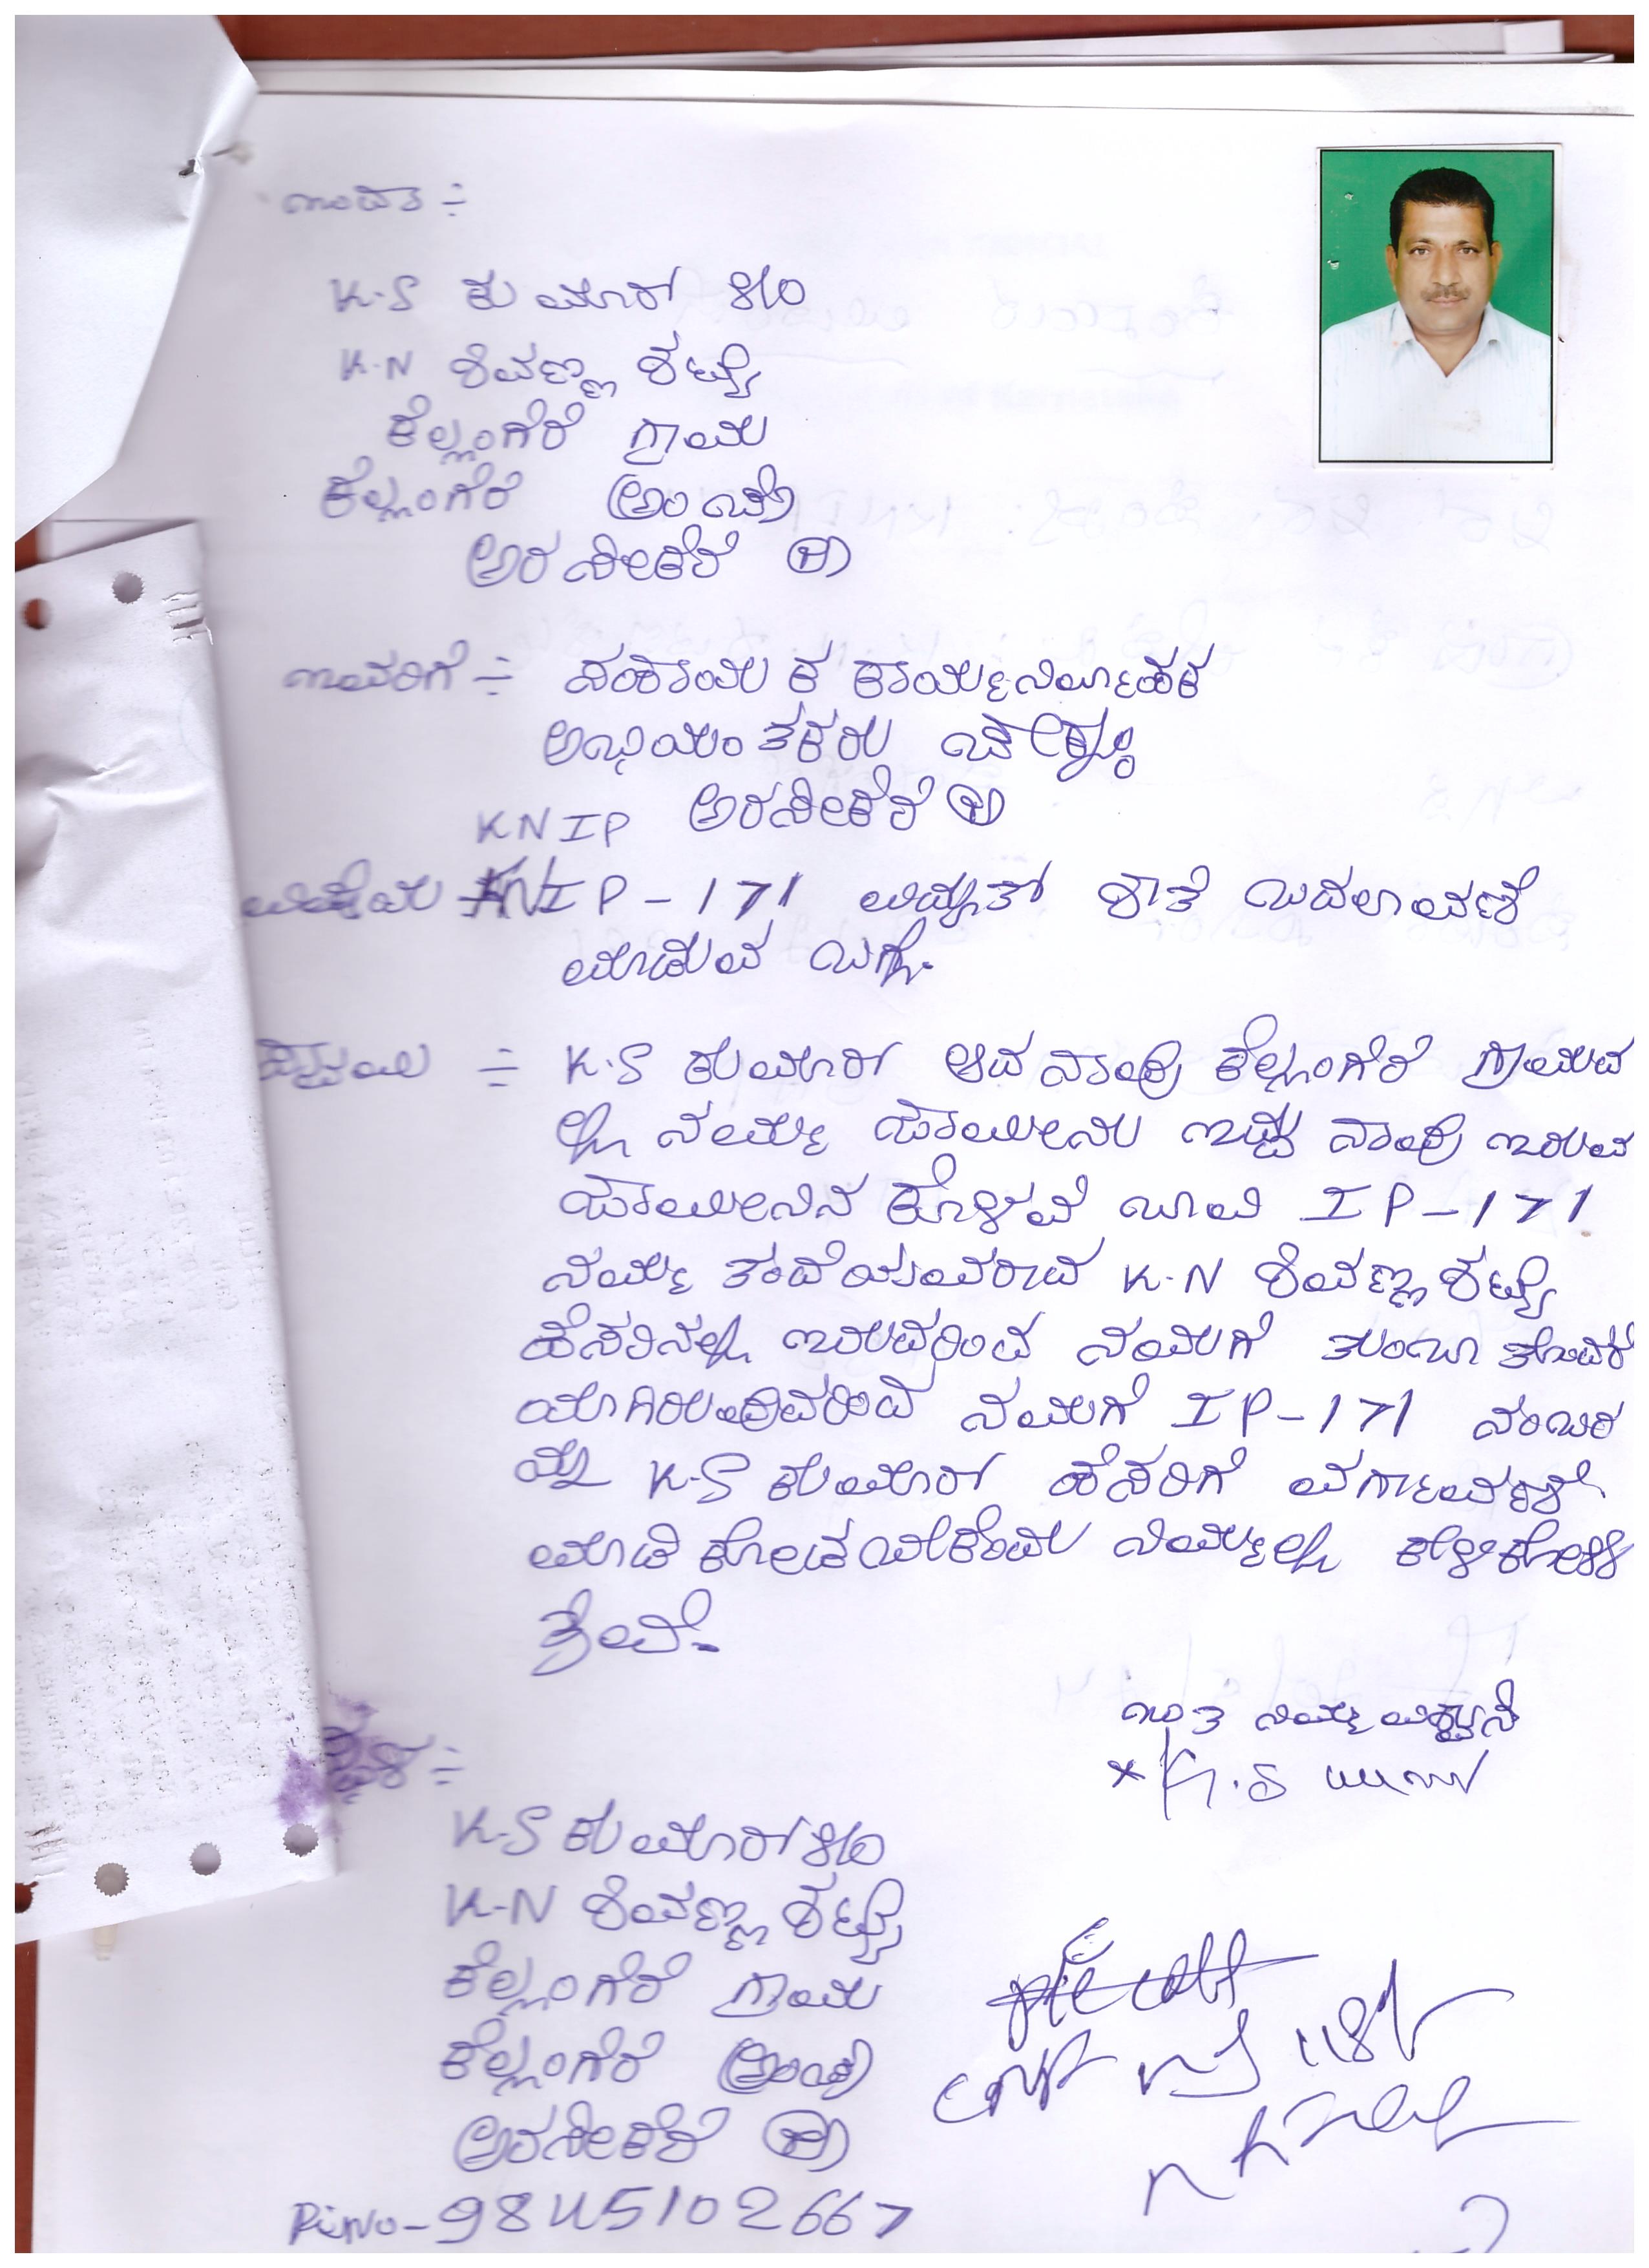 ಇಂದಾ ÷
K.S ಕುಮಾರ್ S/O
K.N ಶಿವಣ್ಣ ಶೆಟ್ಟಿ
ಕೆಲ್ಲಂಗೆರೆ ಗ್ರಾಮ
ಕೆಲ್ಲಂಗೆರೆ ಅಂಚೆ
ಅರಸೀಕೆರೆ ತಾ
ಇವರಿಗೆ ÷ ಸಹಾಯಕ ಕಾರ್ಯನಿರ್ವಾಹಕ
ಅಭಿಯಂತಕರು ಚೆಸ್ಕಾಂ
KNIP ಅರಸೀಕೆರೆ ತಾ
ವಿಷಯ KNIP-171 ವಿದ್ಯುತ್ ಖಾತೆ ಬದಲಾವಣೆ
ಮಾಡುವ ಬಗ್ಗೆ.
÷ K.S ಕುಮಾರ್ ಆದ ನಾನು ಕೆಲ್ಲಂಗೆರೆ ಗ್ರಾಮದ
ಲ್ಲಿ ನಮ್ಮ ಜಾಮೀನು ಇದ್ದು ನಾವು ಇರುವ
ಜಾಮೀನಿನ ಕೊಳವೆ ಬಾವಿ IP-171
ನಮ್ಮ ತಂದೆಯವರಾದ K.N ಶಿವಣ್ಣ ಶೆಟ್ಟಿ
ಹೆಸರಿನಲ್ಲಿ ಇರುವದರಿಂದ ನಮಗೆ ತುಂಬಾ ತೊಂದರೆ
ಯಾಗಿರುವುದರಿಂದ ನಮಗೆ IP-171 ನಂಬರ
ನ್ನು K.S ಕುಮಾರ್ ಹೆಸರಿಗೆ ವರ್ಗಾವಣೆ
ಮಾಡಿ ಕೊಡಬೇಕೆಂದು ನಿಮ್ಮಲ್ಲಿ ಕೇಳಿಕೊಳ್ಳು
ತ್ತೇವೆ.
ಇಂತಿ ನಿಮ್ಮ ವಿಶ್ವಾಸಿ
× K.S
ಸ್ಥಳ ÷
K.S ಕುಮಾರ್ S/O
K.N ಶಿವಣ್ಣ ಶೆಟ್ಟಿ
ಕೆಲ್ಲಂಗೆರೆ ಗ್ರಾಮ
ಕೆಲ್ಲಂಗೆರೆ ಅಂಚೆ
ಅರಸೀಕೆರೆ ತಾ
9845102667